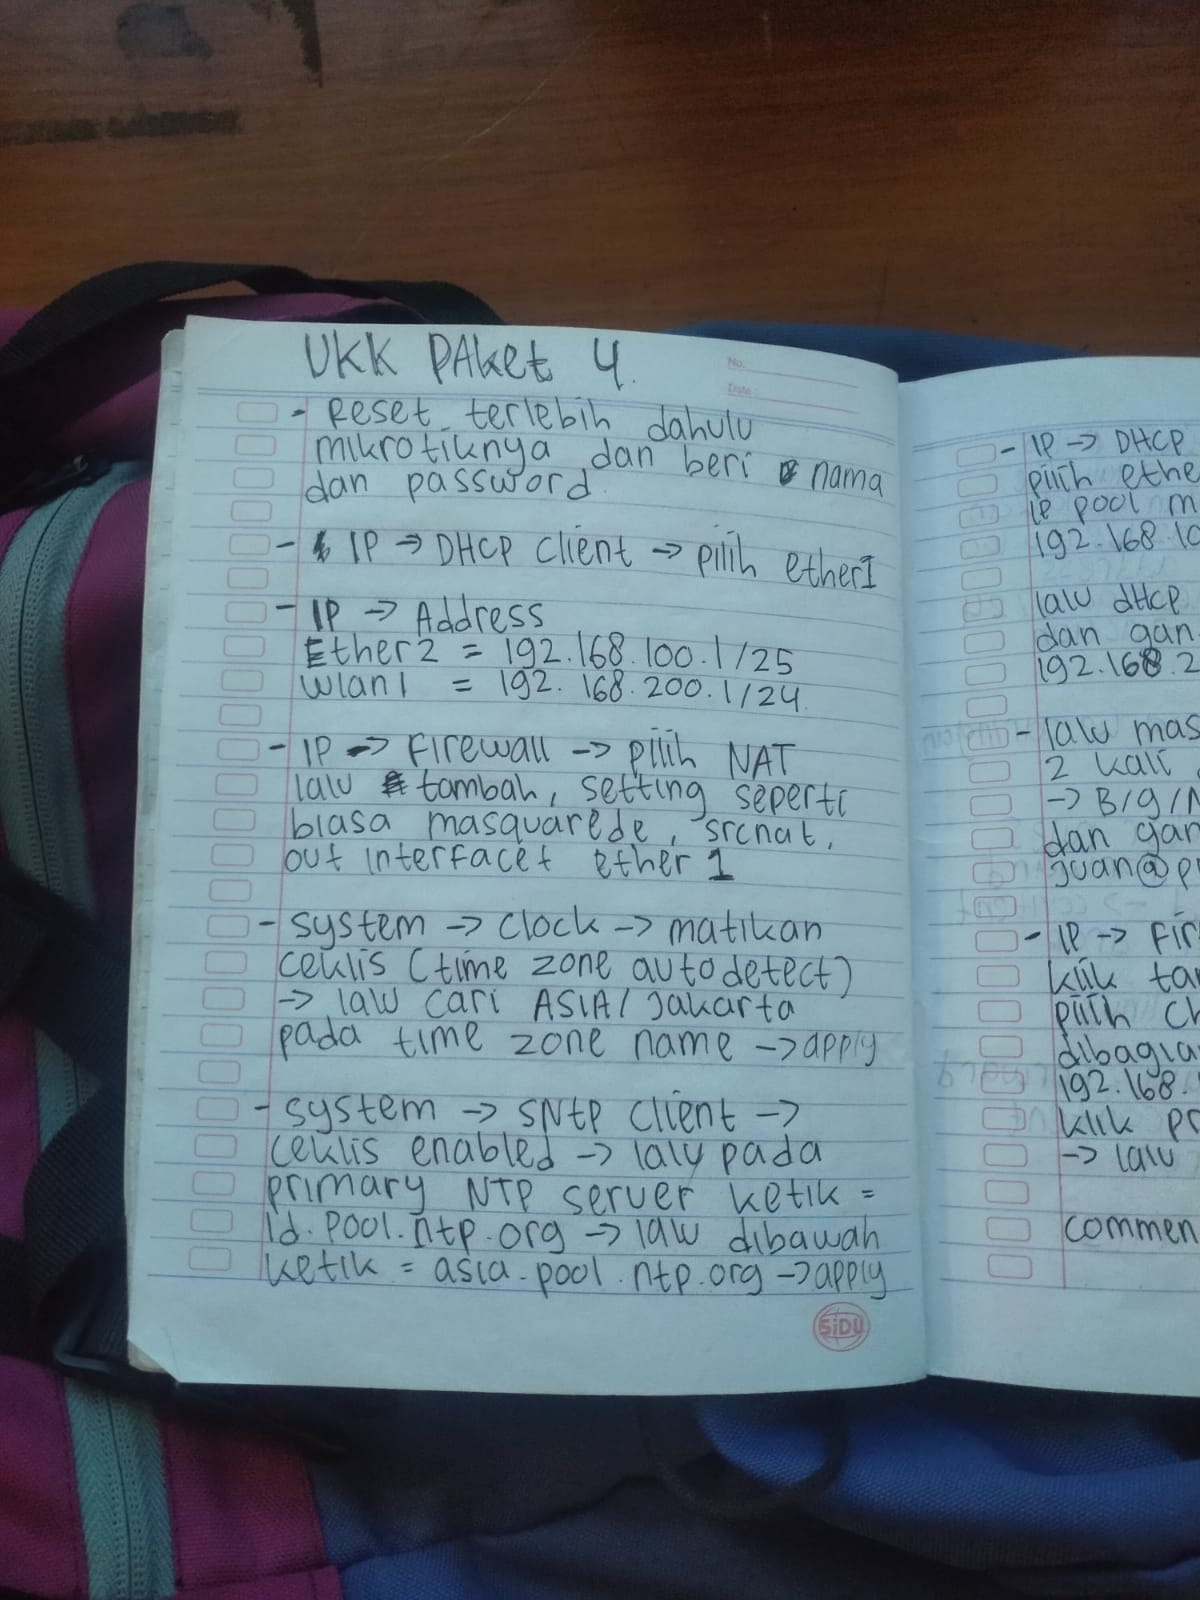 UKK PAket 4.
No.
Date:
- Reset terlebih dahulu
mikrotiknya dan beri nama
dan password.
- IP -> DHCP Client -> pilih ether1
- IP -> Address
Ether2 = 192.168.100.1/25
Wlan1 = 192.168.200.1/24
- IP -> Firewall -> pilih NAT
lalu tambah, setting seperti
biasa masquarede, srcnat,
out interfacet ether 1
- system -> clock -> matikan
ceklis (time zone autodetect)
-> lalu cari ASIA/Jakarta
pada time zone name -> apply
- system -> SNtp Client ->
ceklis enabled -> lalu pada
primary NTP server ketik =
id.pool.ntp.org -> lalu dibawah
ketik = asia.pool.ntp.org -> apply
SiDU
- IP -> DHCP
pilih
IP pool
lalu dHcp
dan
- lalu
2 kali
dan
- IP ->
klik
pilih
klik
-> lalu